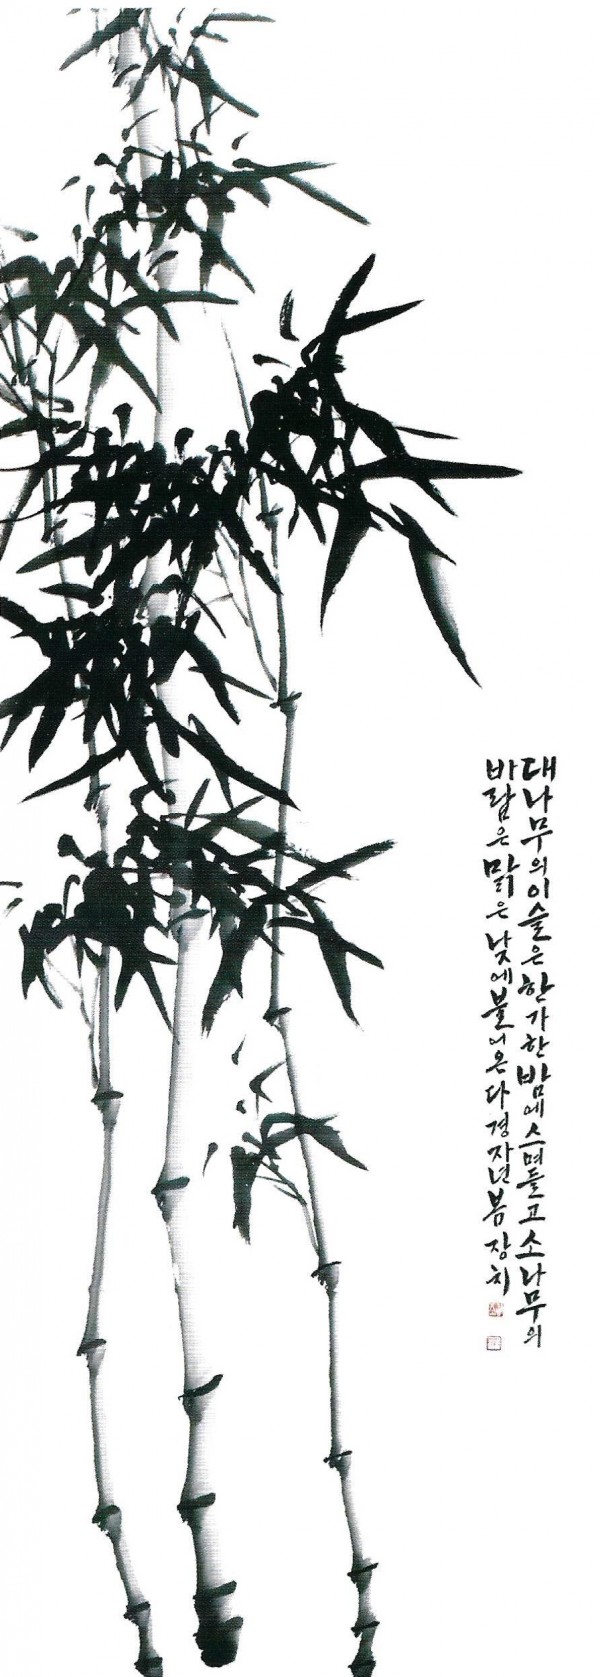 대나무의 이슬은 한가한 밤에 스며들고 소나무의
바람은 맑은 낮에 불어온다 경자년 봄 장히